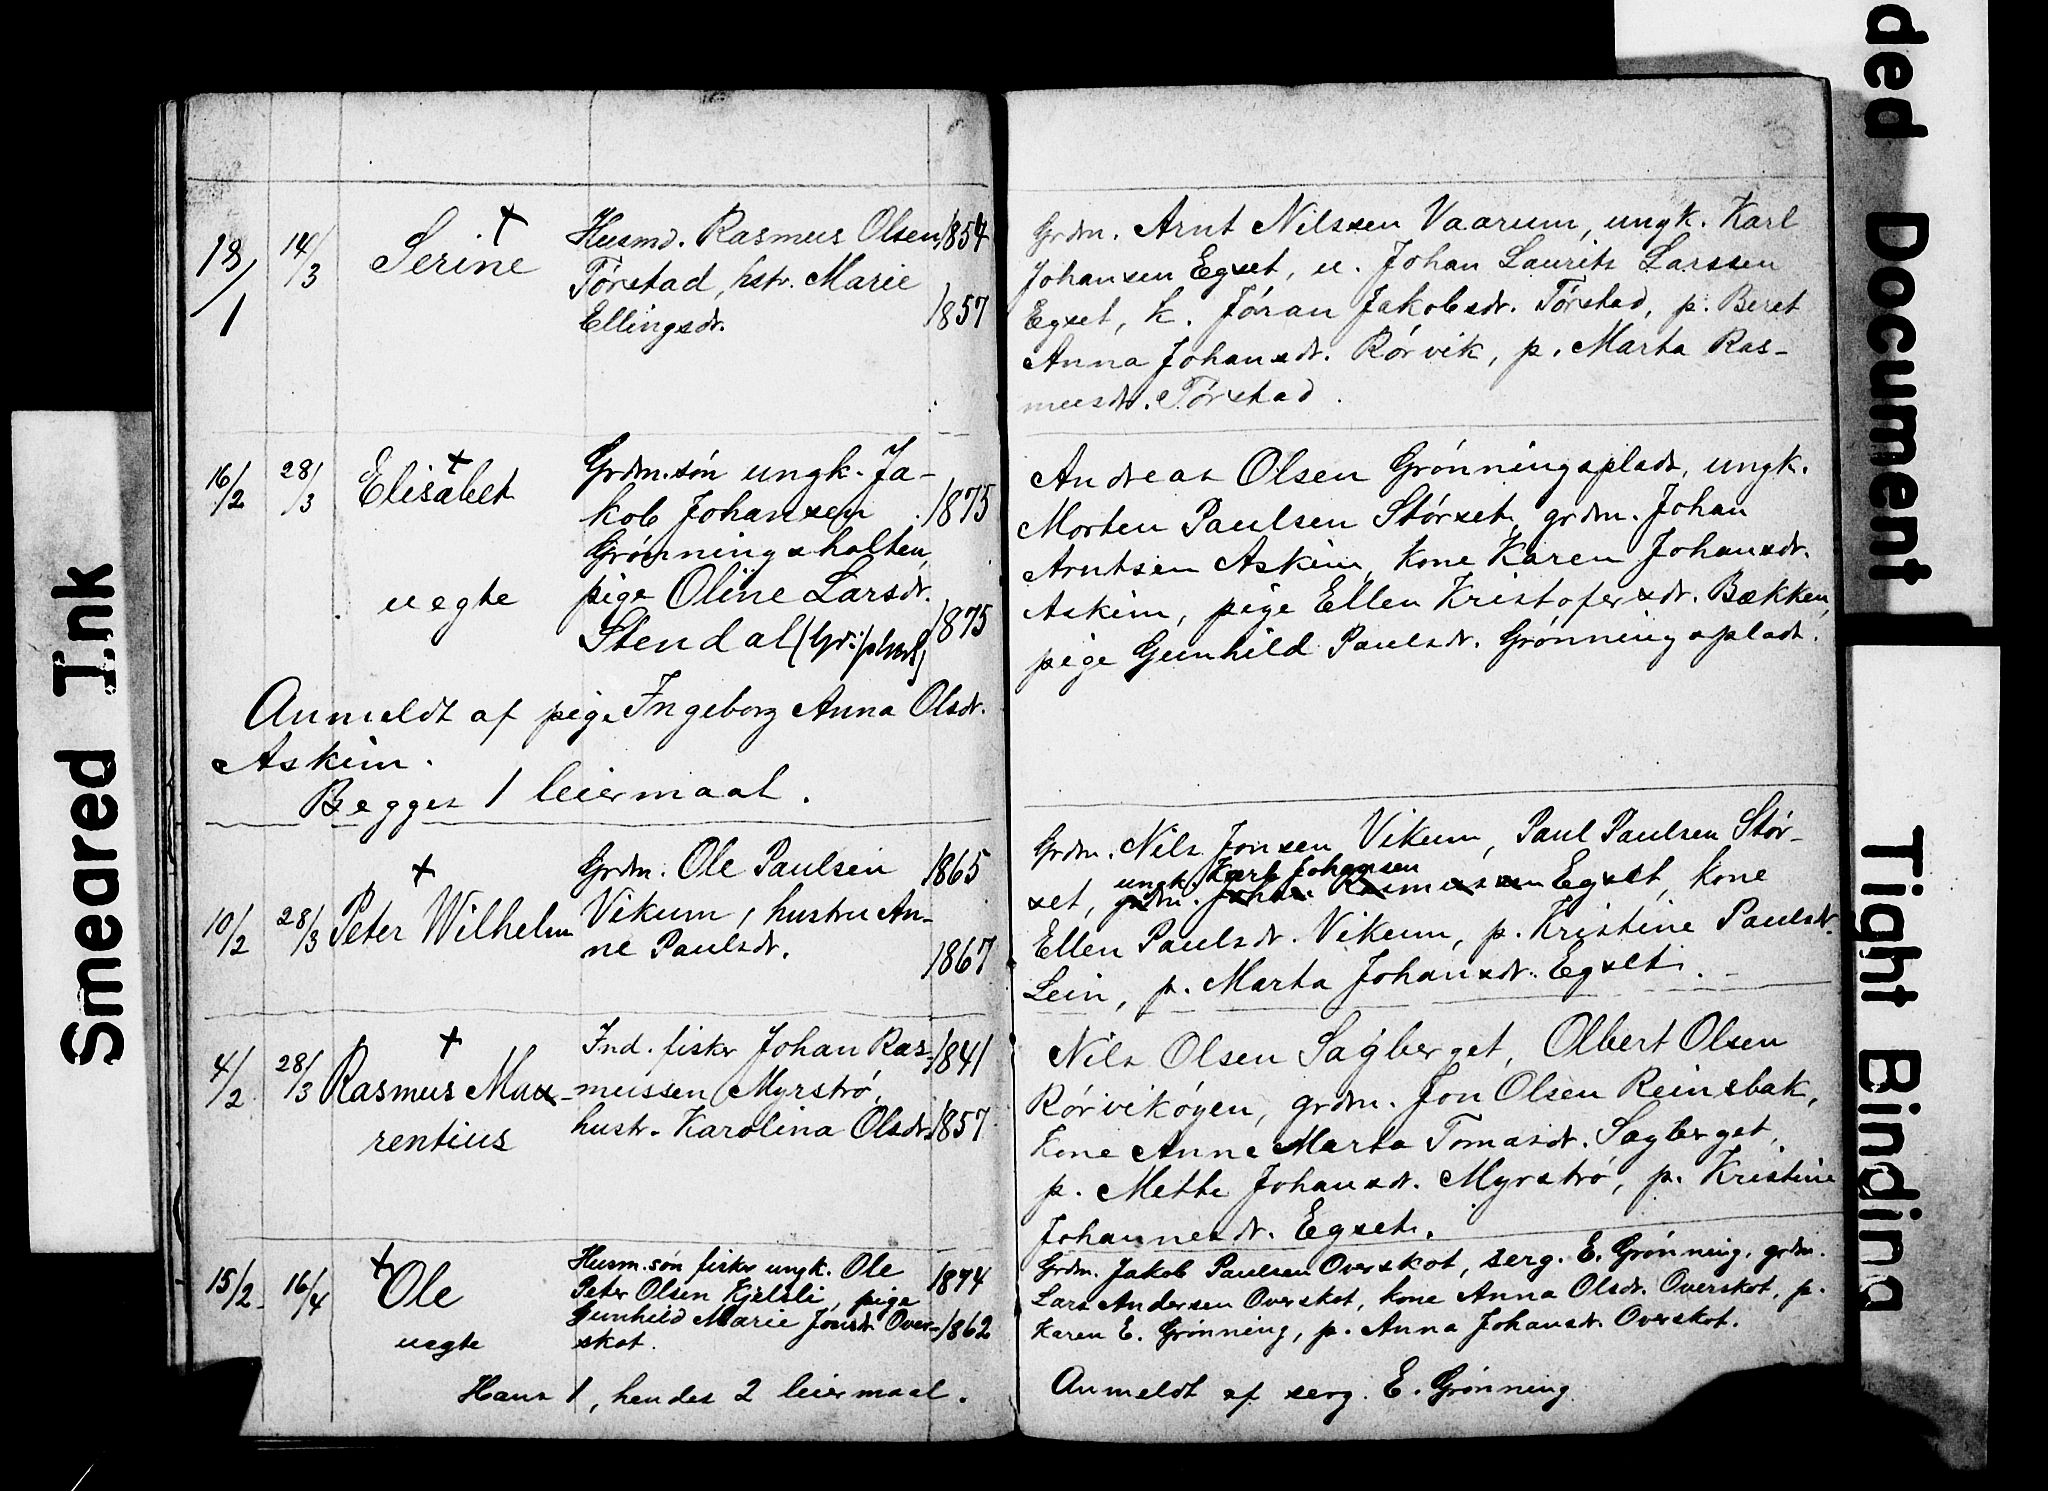 18/1 14/3 Serine Husmd. Rasmus Olsen 1854
Tørstad, hstr. Marie
Ellingsdr. 1857
Grdm. Arnt Nilssen Vaarum, ungk. Karl
Johansen Egset, u. Johan Laurits Larssen
Egset, k. Jøran Jakobsdr. Tørstad, p. Beret
Anna Johansdr. Rørvik, p. Marta Ras-
musdr. Tørstad.
16/2 28/3 Elisabet Grdm.søn ungk. Ja-
kob Johansen 1875
Grønningsholten,
uegte pige Oline Larsdr.
Stendal 1875
Anmeldt af pige Ingeborg Anna Olsdr.
Askim.
Begges 1 leiermaal.
Andreas Olsen Grønningsplads, ungk.
Morten Paulsen Størset, grdm. Johan
Arntsen Askim, kone Karen Johansdr.
Askim, pige Ellen Kristofersdr. Bækken,
pige Gunhild Paulsdr. Grønningsplads.
10/2 28/3 Peter Wilhelm Grdm. Ole Paulsen 1865
Vikum, hustru An-
ne Paulsdr. 1867
Grdm. Nils Jonsen Vikum, Paul Paulsen Stør-
ungk. Karl Johansen
set, grdm. Johan Rasmussen Egset, kone
Ellen Paulsdr. Vikum, p. Kristine Paulsdr.
Lein, p. Marta Johansdr. Egset.
4/2 28/3 Rasmus Mau-
rentius
Ind. fisker Johan Ras- 1841
mussen Myrstrø,
hustr. Karolina Olsdr. 1857
Nils Olsen Sagberget, Olbert Olsen
Rørvikøyen, grdm. Jon Olsen Reinsbak,
kone Anne Marta Tomasdr. Sagberget,
p. Mette Johansdr. Myrstrø, p. Kristine
Johannesdr. Egset.
15/2 16/4 Ole
uegte
Husm.søn fisker ungk. Ole 1874
Peter Olsen Kjelsli, pige
Gunhild Marie Jonsdr. Over- 1862
skot.
Hans 1, hendes 2 leiermaal.
Grdm. Jakob Paulsen Overskot, serg. E. Grønning, grdm.
Lars Andersen Overskot, kone Anna Olsdr. Overskot, p.
Karen E. Grønning, p. Anna Johansdr. Overskot.
Anmeldt af serg. E. Grønning
Smeared Ink
ded Document
Tight Binding